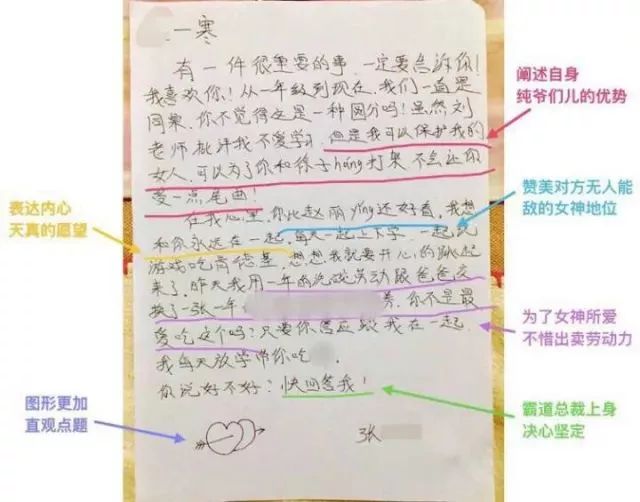 一寒
有一件很重要的事.一定要告诉你!
我喜欢你!从一年级到现在,我们一直是
同桌.你不觉得这是一种园分吗!虽然刘
老师批评我不爱学习,但是我可以保护我的
女人,可以为了你和徐子háng打架.不会让你
受一点尾曲!
在我心里,你比赵丽yǐng还好看,我想
和你永远在一起,每天一起上下学.一起玩
游戏吃肯德基.想想我就要开心的跳起
来了,昨天我用一年的洗碗劳动跟爸爸交
换了一张一年 券,你不是最
爱吃这个吗?只要你答应跟我在一起.
我每天放学带你吃
你说好不好?快回答我!
张
阐述自身
纯爷们儿的优势
赞美对方无人能
敌的女神地位
表达内心
天真的愿望
为了女神所爱
不惜出卖劳动力
图形更加
直观点题
霸道总裁上身
决心坚定